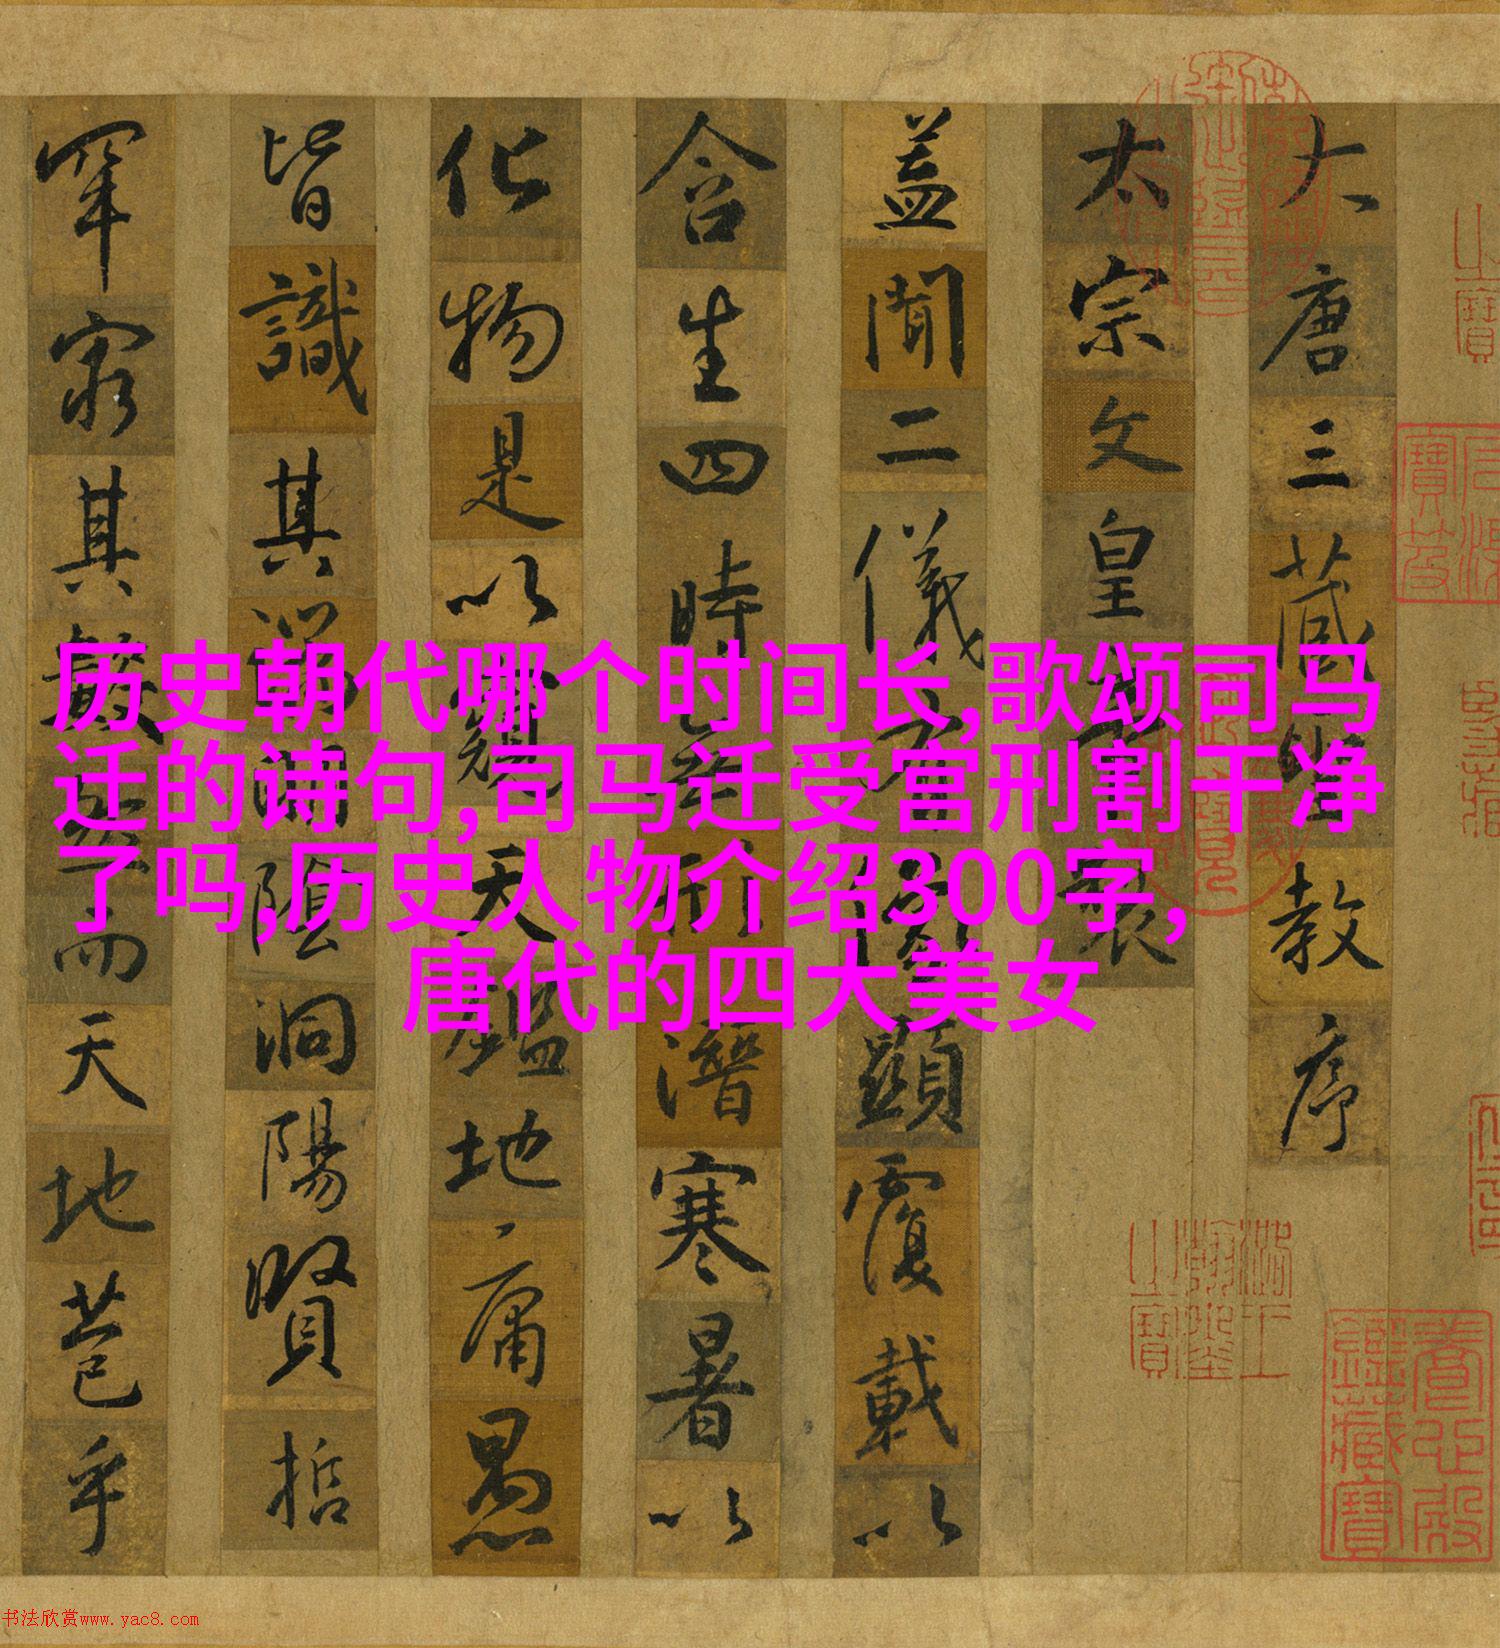 大唐三藏聖教序
太宗文皇帝製
蓋聞二儀有像顯覆載以
含生四時無形潛寒暑以
化物是以窺天鑑地庸愚
皆識其端明陰洞陽賢哲
罕窮其數然而天地苞乎
历史朝代哪个时间长,歌颂司马
迁的诗句,司马迁受宫刑割干净
了吗,历史人物介绍300字,
唐代的四大美女
书法欣赏www.yac8.com